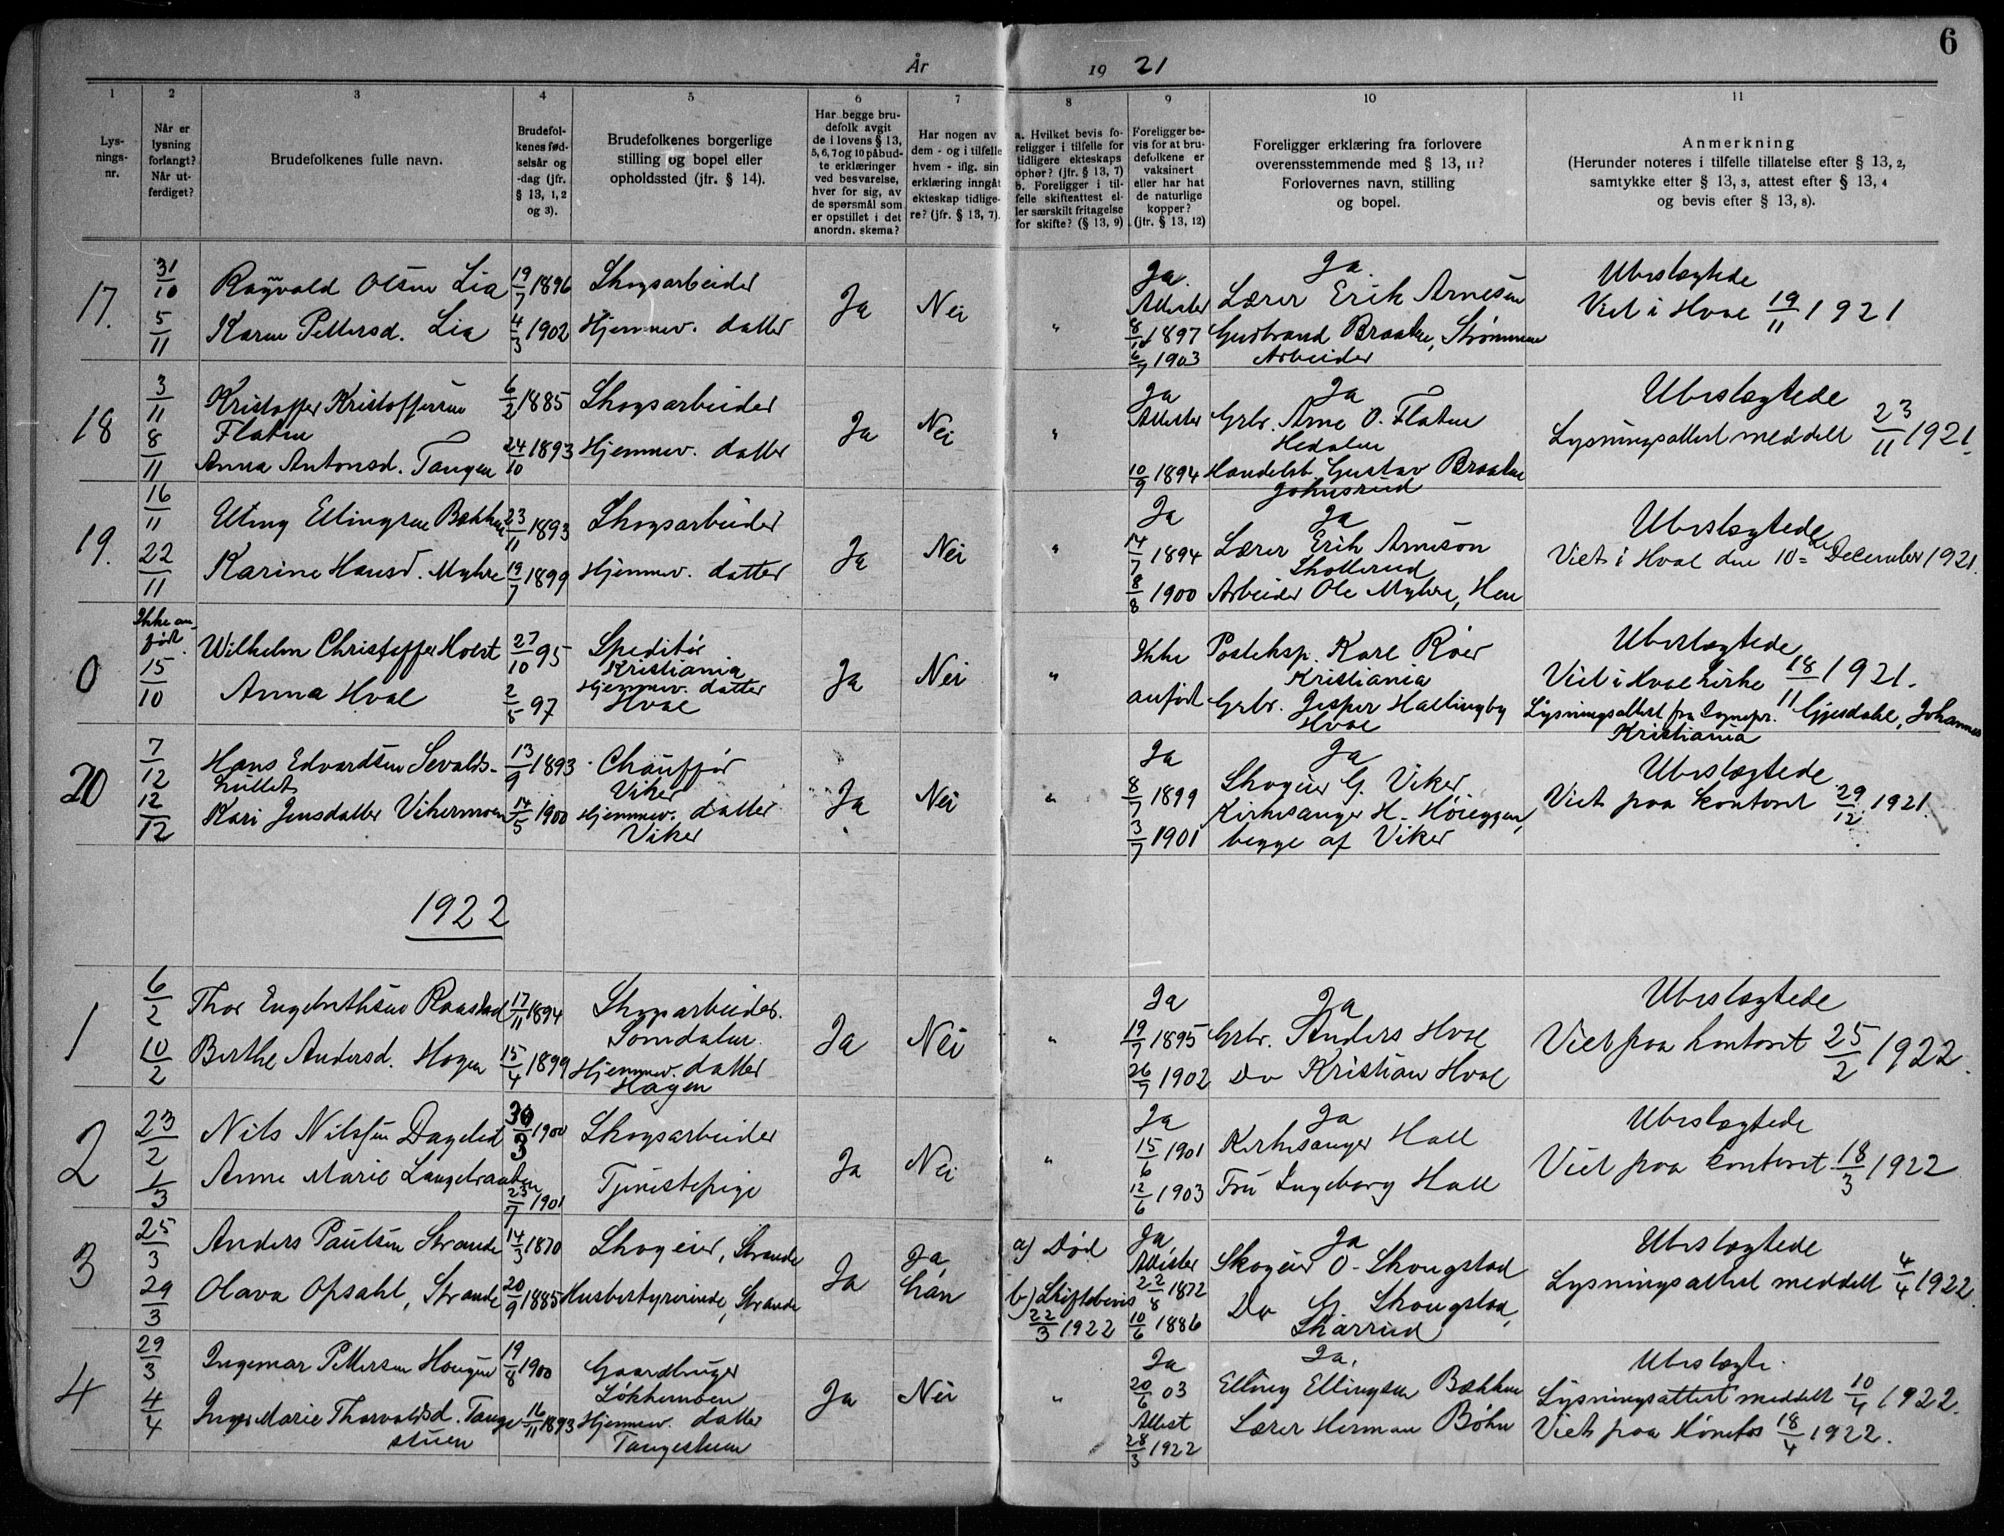 6
År 19 21
1 2 3 4 5 6 7 8 9 10 11
Lys-
nings-
nr.
Når er
lysning
forlangt?
Når ut-
ferdiget?
Brudefolkenes fulle navn.
Brudefol-
kenes fød-
selsår og
-dag (jfr.
§ 13, 1, 2
og 3).
Brudefolkenes borgerlige
stilling og bopel eller
opholdssted (jfr. § 14).
Har begge bru-
defolk avgit
de i lovens § 13,
5, 6, 7 og 10 påbud-
te erklæringer
ved besvarelse,
hver for sig, av
de spørsmål som
er opstillet i det
anordn. skema?
Har nogen av
dem - og i tilfelle
hvem - iflg. sin
erklæring inngåt
ekteskap tidlige-
re? (jfr. § 13, 7).
a. Hvilket bevis fo-
religger i tilfelle for
tidligere ekteskaps
ophør? (jfr. § 13, 7)
b. Foreligger i til-
felle skifteattest el-
ler særskilt fritagelse
for skifte? (§ 13, 9)
Foreligger be-
vis for at bru-
defolkene er
vaksinert
eller har hat
de naturlige
kopper?
(jfr. § 13, 12)
Foreligger erklæring fra forlovere
overensstemmende med § 13, 11?
Forlovernes navn, stilling
og bopel.
Anmerkning
(Herunder noteres i tilfelle tillatelse efter § 13, 2,
samtykke efter § 13, 3, attest efter § 13, 4
og bevis efter § 13, 8).
17. 31/10 Ragvald Olsen Lia 19/7 1896 Skogsarbeider Ja Nei " Ja. Ja. Ubeslægtede
5/11 Karen Pettersd. Lia 4/3 1902 Hjemmev. datter Attester Lærer Erik Arnesen Viet i Hval 19/11 1921
1897 Gudbrand Braaten, Strømmen
6/7 1903 Arbeider
18 3/11 Kristoffer Kristoffersen 6/2 1885 Skogsarbeider Ja Nei " Ja Ja Ubeslægtede
Flaten Attester Grbr. Arne O. Flaten Lysningsattest meddelt 23/11 1921.
Hedalen
8/11 Anna Antonsd. Tangen 24/10 1893 Hjemmev. datter 10/9 1894 Handelsb. Gustav Braaten
Johnsrud
19. 16/11 Elling Ellingsen Bækken 23/11 1893 Skogsarbeider Ja Nei " Ja Ja Ubeslægtede
22/11 Karine Hansd. Myhre 19/7 1899 Hjemmev. datter 14/7 1894 Lærer Erik Arneson Viet i Hval den 10=de December 1921.
Skollerud
8/8 1900 Arbeider Ole Myhre, Hen
0 Ikke an-
ført. Wilhelm Christoffer Holst 27/10 95 Speditør Ja Nei " Ikke Posteksp. Karl Röer Ubeslægtede
Kristiania Kristiania Viet i Hval kirke 18/11 1921.
15/10 Anna Hval 2/5 97 Hjemmev. datter anført Grbr. Jesper Hallingby Lysningsattest fra Sognepr. Gjesdahl, Johannes
Hval Hval Kristiania
20 7/12 Hans Edvardsen Sevalds- 13/9 1893 Chauffør Ja Nei " Ja Ja Ubeslægtede
hullet Viker 8/7 1899 Skogeier G. Viker Viet paa kontoret 29/12 1921.
12/12 Kari Jensdatter Vikermoen 14/5 1900 Hjemmev. datter Kirkesanger H. Høieggen,
Viker 3/7 1901 begge af Viker
1922
1 6/2 Thor Engebrethsen Raastad 17/11 1894 Skogsarbeider. Ja Nei " Ja Ja Ubeslægtede
Somdalen. 19/7 1895 Grbr. Anders Hval Viet paa kontoret 25/2 1922.
10/2 Berthe Andersd. Hagen 15/4 1899 Hjemmev. datter 26/7 1902 Do Kristian Hval
Hagen
2 23/2 Nils Nilssen Dagelid 30/3 1900 Skogsarbeider Ja Nei " Ja Ja Ubeslægtede
15/6 1901 Kirkesanger Hall Viet paa kontoret 18/3 1922
1/3 Anne Marie Langebraaten 23/7 1901 Tjenestepige 12/6 1903 Fru Ingeborg Hall
3 25/3 Anders Paulsen Strande 14/3 1870 Skogeier, Strande Ja Ja, han a) Død Ja Ja Ubeslægtede
Attester Skogeier O. Skougstad Lysningsattest meddelt 4/4 1922.
29/3 Olava Opsahl, Strande 20/9 1885 Husbestyrerinde, Strande b) Skiftebevis 22/8 1872 Do G. Skougstad,
22/3 1922 10/6 1886 Skarrud
4 29/3 Ingemar Pettersen Haugen 19/8 1900 Gaardbruger Ja Nei " Ja Ja, Ubeslægte.
Løkkemoen 20/6 03 Elling Ellingsen Bækken Lysningsattest meddelt 10/4 1922.
4/4 Inger Marie Thorvaldsd. Tange- 16/11 1893 Hjemmev. datter Attest Lærer Herman Bøhn Viet paa Hønefos 18/4 1922.
stuen Tangestuen 28/3 1922